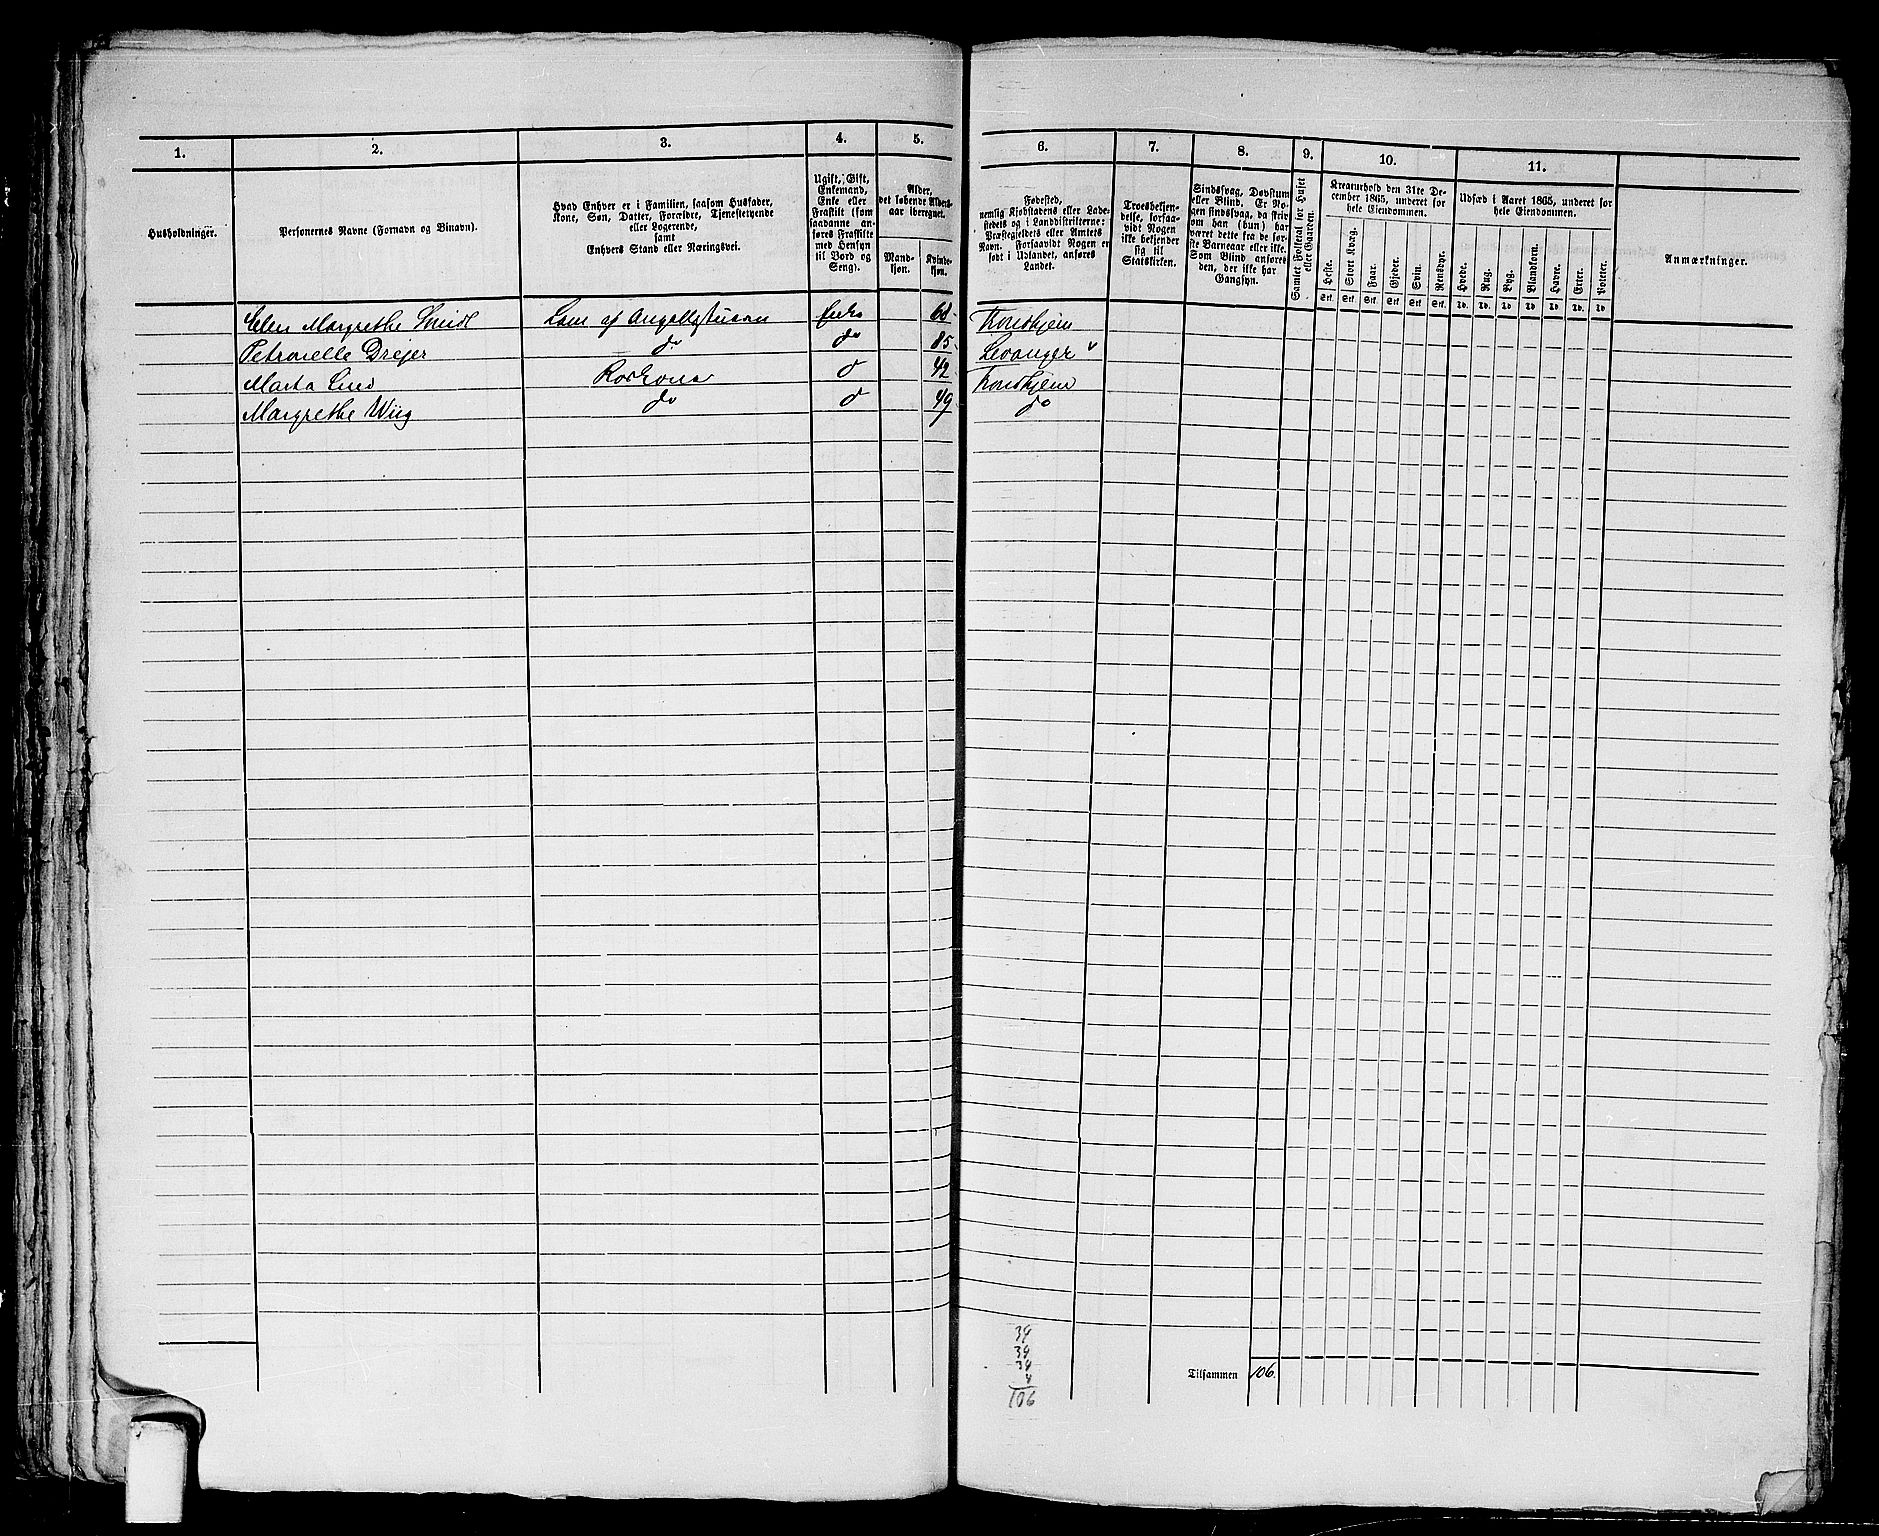 1.
2.
3.
4.
5.
6.
7.
8.
9.
10.
11.
Husholdninger.
Personernes Navne (Fornavn og Binavn).
Hvad Enhver er i Familien, saasom Husfader,
Kone, Søn, Datter, Forældre, Tjenestetyende
eller Logerende,
samt
Enhvers Stand eller Næringsvei.
Ugift, Gift,
Enkemand,
Enke eller
Fraskilt (som
saadanne an-
føres Fraskilte
med Hensyn
til Bord og
Seng).
Alder,
det løbende Alders-
aar iberegnet.
Mand-
kjøn.
Kvinde-
kjøn.
Fødested,
nemlig Kjøbstadens eller Lade-
stedets og i Landdistrikterne:
Præstegjeldets eller Amtets
Navn. Forsaavidt Nogen er
født i Udlandet, anføres
Landet.
Troesbekjen-
delse, forsaa-
vidt Nogen
ikke bekjender
sig til
Statskirken.
Sindssvag, Døvstum
eller Blind. Er No-
gen sindssvag, da skriv
om han (hun) har
været dette fra de før-
ste Barneaar eller ikke.
Som Blind anføres
den, der ikke har
Gangsyn.
Samlet Folketal for Huset
eller Gaarden.
Kreaturhold den 31te De-
cember 1865, underet for
hele Eiendommen.
Heste.
Stort Kvæg.
Faar.
Gjeder.
Svin.
Rensdyr.
Stk. Stk. Stk. Stk. Stk. Stk.
Udsæd i Aaret 1865, underet for
hele Eiendommen.
Hvede.
Rug.
Byg.
Blandkorn.
Havre.
Erter.
Poteter.
Td. Td. Td. Td. Td. Td. Td.
Anmærkninger.
Elen Margrethe Smidt Lem af enke 68 Trondhjem
Petronelle Drejer do do 85 Levanger
Marta Lund d 42 Trondhjem
Margrethe Wiig do d 49 do
34
34
34
4
106
Tilsammen 106.